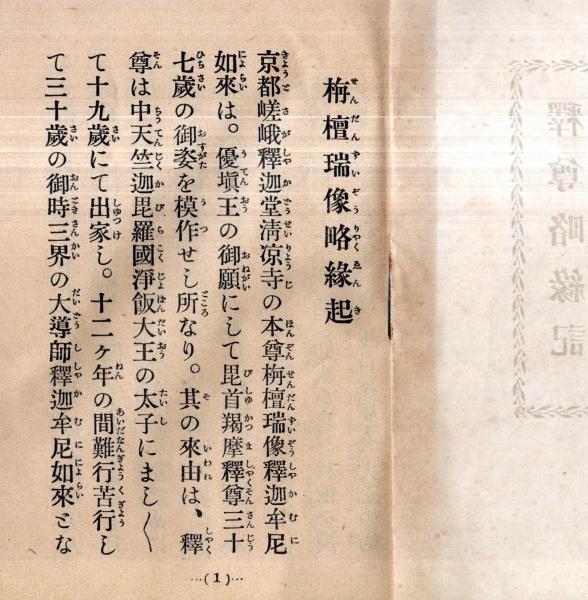 栴檀瑞像略緣起
京都嵯峨釋迦堂淸凉寺の本尊栴檀瑞像釋迦牟尼
如來は。優塡王の御願にして毘首羯摩釋尊三十
七歲の御姿を模作せし所なり。其の來由は、釋
尊は中天竺迦毘羅國淨飯大王の太子にまし〳〵
て十九歲にて出家し。十二ヶ年の間難行苦行し
て三十歲の御時三界の大導師釋迦牟尼如來とな
…(1)…
釋尊略緣記